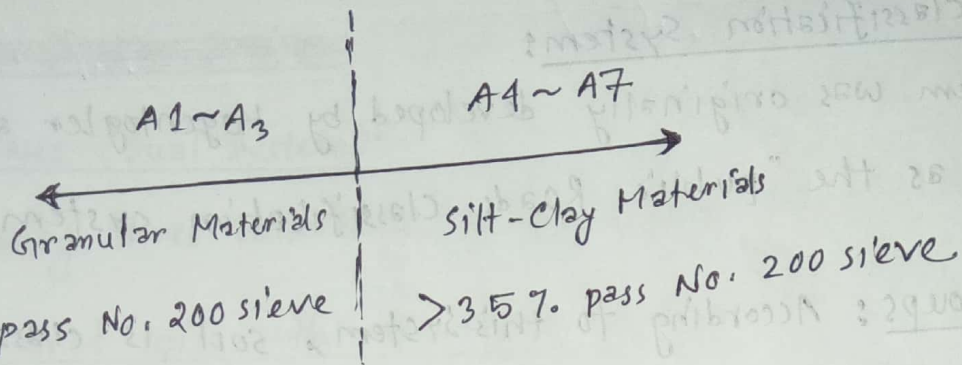 A1~A3
A4 ~ A7
Granular Materials
Silt-Clay Materials
pass No. 200 sieve
>35% pass No. 200 sieve